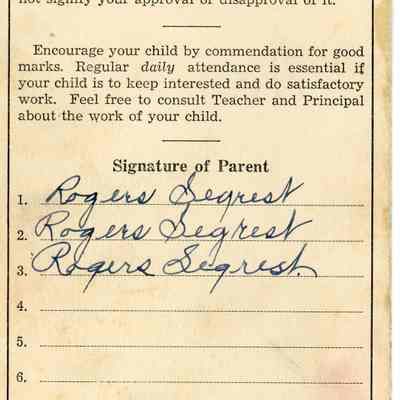 not signify your approval or disapproval of it.
Encourage your child by commendation for good
marks. Regular daily attendance is essential if
your child is to keep interested and do satisfactory
work. Feel free to consult Teacher and Principal
about the work of your child.
Signature of Parent
1. Rogers Segrest
2. Rogers Segrest
3. Rogers Segrest.
4.
5.
6.